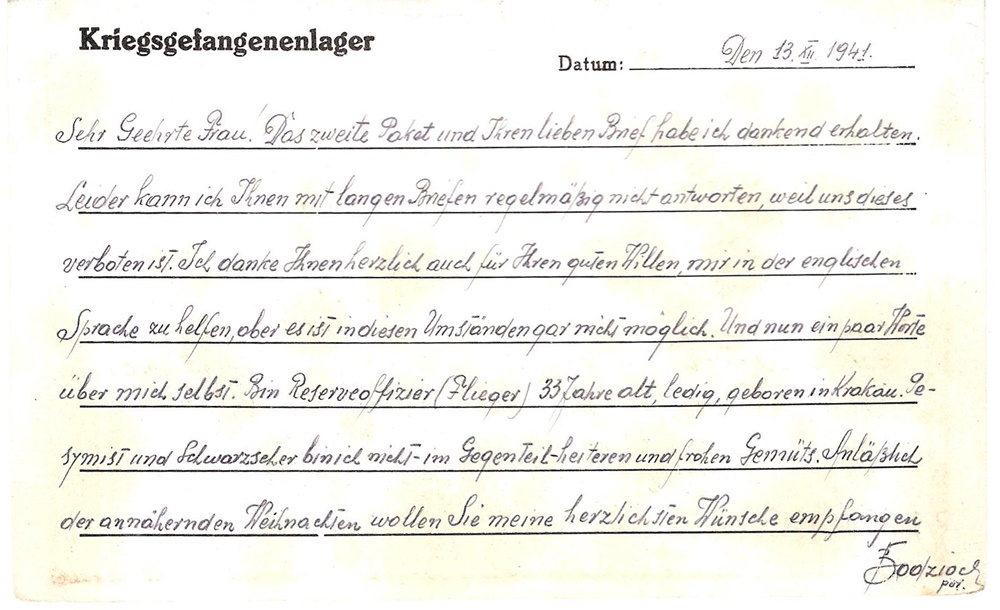 Kriegsgefangenenlager
Datum: Den 13. XII. 1941.
Sehr Geehrte Frau! Das zweite Paket und Ihren lieben Brief habe ich dankend erhalten.
Leider kann ich Ihnen mit langen Briefen regelmäßig nicht antworten, weil uns dieses
verboten ist. Ich danke Ihnen herzlich auch für Ihren guten Willen, mir in der englischen
Sprache zu helfen, aber es ist in diesen Umständen gar nicht möglich. Und nun ein paar Worte
über mich selbst. Bin Reserveoffizier (Flieger) 33 Jahre alt, ledig, geboren in Krakau. Pe-
symist und Schwarzseher bin ich nicht - im Gegenteil - heiteren und frohen Gemüts. Anläßlich
der annähernden Weihnachten wollen Sie meine herzlichsten Wünsche empfangen
por.